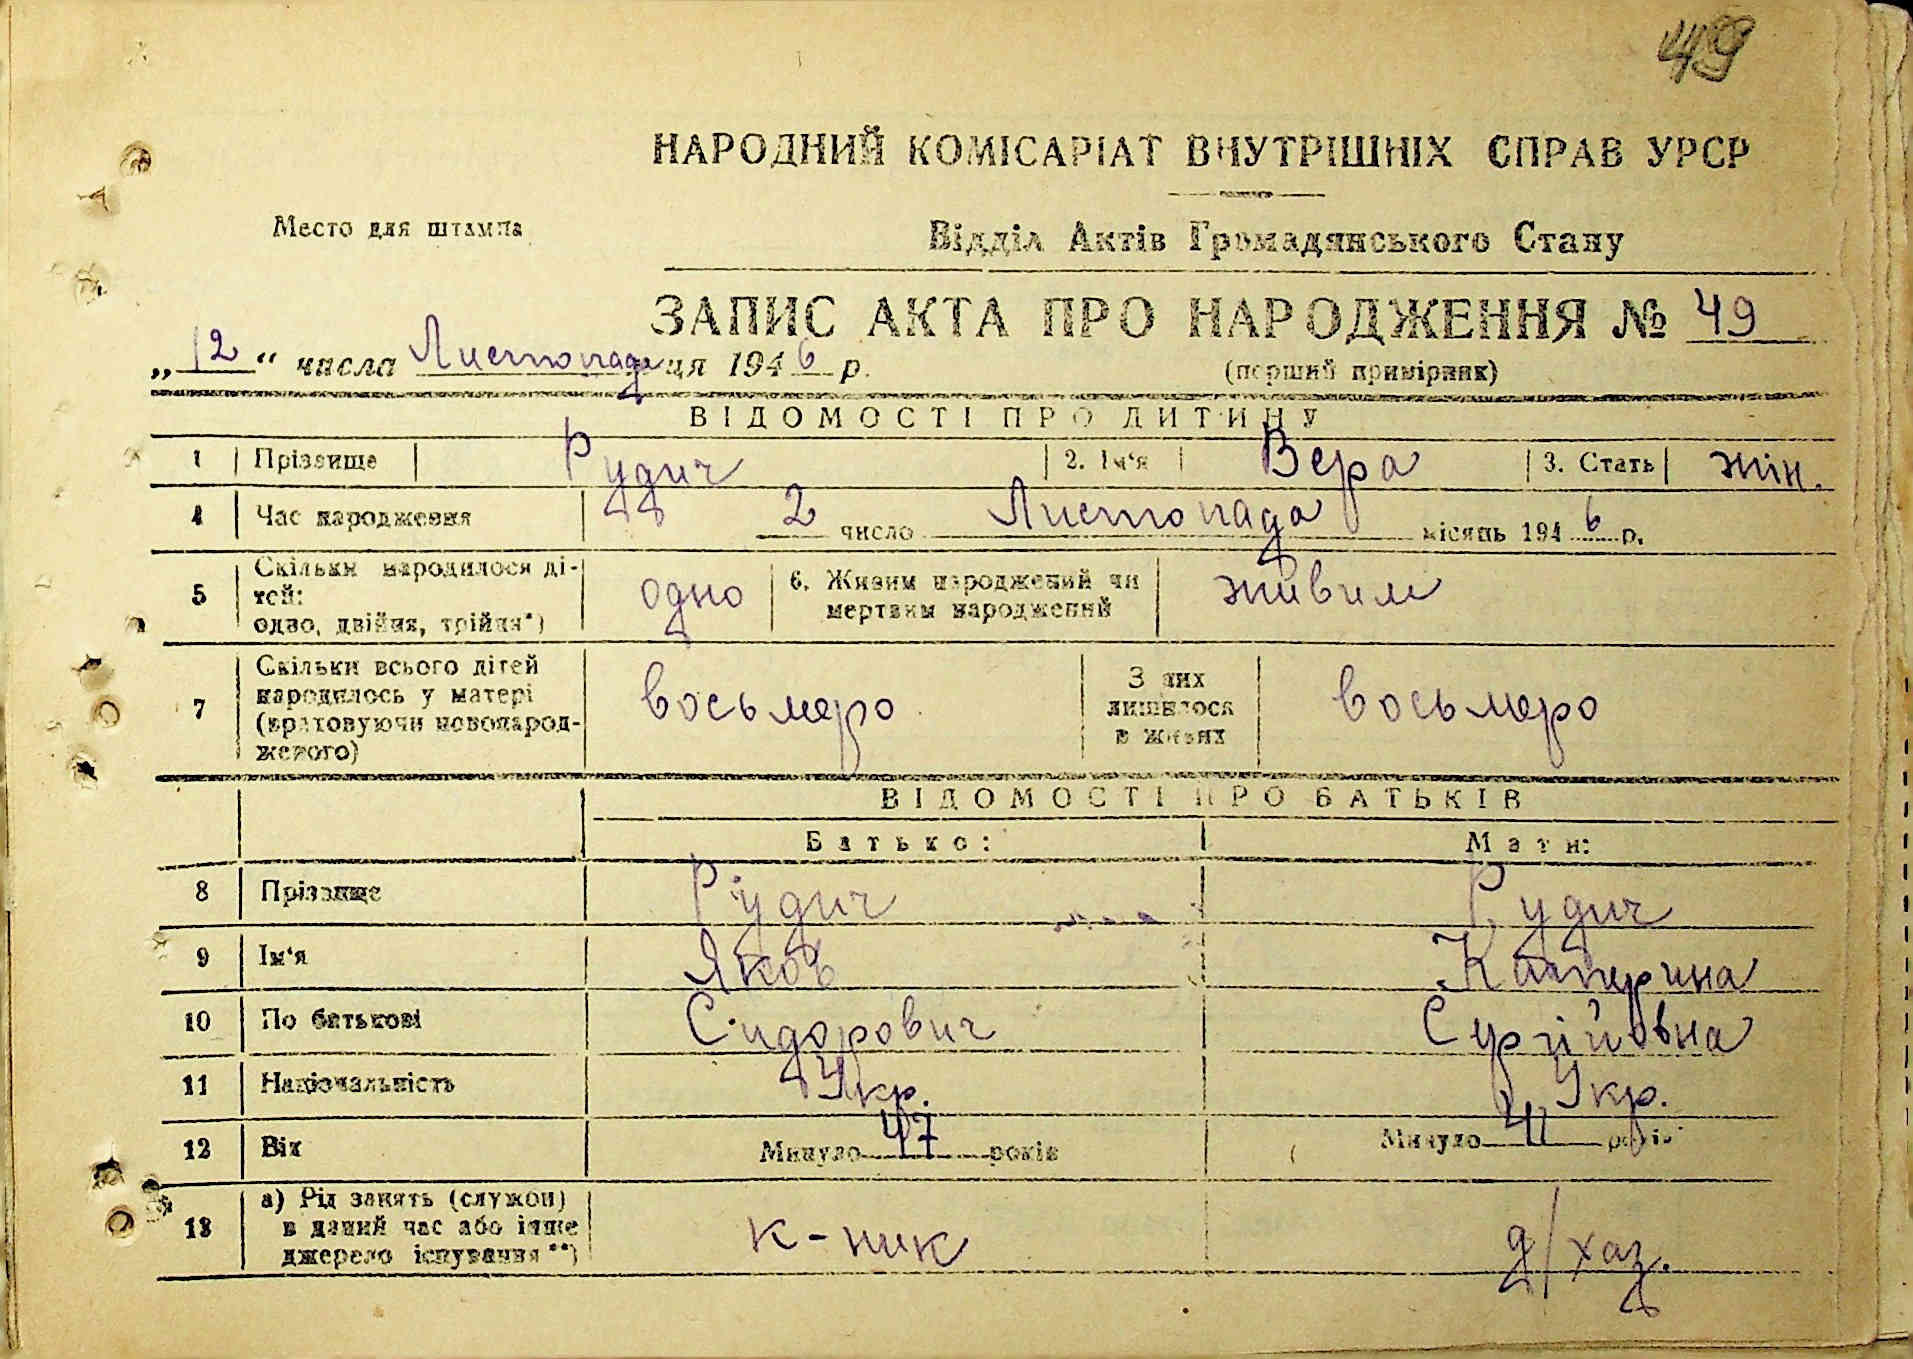 49
НАРОДНИЙ КОМІСАРІАТ ВНУТРІШНІХ СПРАВ УРСР
Место для штампа
Відділ Актів Громадянського Стану
ЗАПИС АКТА ПРО НАРОДЖЕННЯ № 49
„12“ числа Листопада ця 1946 р.
(перший примірник)
ВІДОМОСТІ ПРО ДИТИНУ
1 Прізвище Рудич 2. Ім'я Вера 3. Стать жін.
4 Час народження 2 число Листопада місяць 1946 р.
5 Скільки народилося ді-
тей:
одно, двійня, трійня*) одно 6. Живим народжений чи
мертвим народжений живим
7 Скільки всього дітей
народилось у матері
(враховуючи новонарод-
женого) восьмеро З них
лишилося
в живих восьмеро
ВІДОМОСТІ ПРО БАТЬКІВ
Батько: Мати:
8 Прізвище Рудич Рудич
9 Ім'я Яков Катерина
10 По батькові Сидорович Сергійовна
11 Національність Укр. Укр.
12 Вік Минуло 47 років Минуло 41 років
13 а) Рід занять (служби)
в даний час або інше
джерело існування**) к-ник д/хаз.